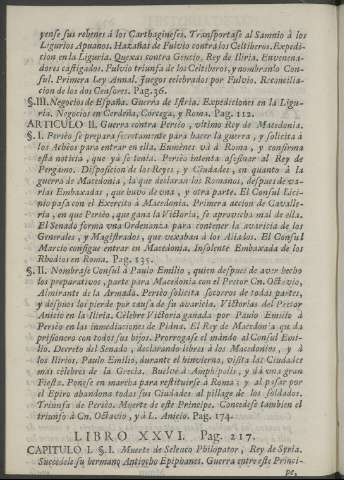 yense sus rehenes à los Carthagineses. Transportase al Samnio à los
Ligurios Apuanos. Hazañas de Fulvio contra los Celtiberos. Expedi-
cion en la Liguria. Quexas contra Gencio, Rey de Iliria. Envenena-
dores castigados. Fulvio triunfa de los Celtiberos, y nombranlo Con-
sul. Primera Ley Annal. Juegos celebrados por Fulvio. Reconcilia-
cion de los dos Censores. Pag. 36.
§. III. Negocios de España. Guerra de Istria. Expediciones en la Ligu-
ria. Negocios en Cerdeña, Corcega, y Roma. Pag. 112.
ARTICULO II. Guerra contra Persèo, ultimo Rey de Macedonia.
§. I. Persèo se prepara secretamente para hacer la guerra, y solicita à
los Achèos para entrar en ella. Eumenes và à Roma, y confirma
esta noticia, que yà se tenia. Persèo intenta asesinar al Rey de
Pergamo. Disposicion de los Reyes, y Ciudades, en quanto à la
guerra de Macedonia, la que declaran los Romanos, despues de va-
rias Embaxadas, que huvo de una, y otra parte. El Consul Lici-
nio pasa con el Exercito à Macedonia. Primera accion de Cavalle-
ria, en que Persèo, que gana la Victoria, se aprovecha mal de ella.
El Senado forma una Ordenanza para contener la avaricia de los
Generales, y Magistrados, que vexaban à los Aliados. El Consul
Marcio consigue entrar en Macedonia. Insolente Embaxada de los
Rhodios en Roma. Pag. 135.
§. II. Nombrase Consul à Paulo Emilio, quien despues de aver hecho
los preparativos, parte para Macedonia con el Pretor Cn. Octavio,
Almirante de la Armada. Persèo solicita socorros de todas partes,
y despues los pierde por causa de su avaricia. Victorias del Pretor
Anicio en la Iliria. Célebre Victoria ganada por Paulo Emilio à
Persèo en las inmediaciones de Pidna. El Rey de Macedonia queda
prisionero con todos sus hijos. Prorrogase el mando al Consul Emi-
lio. Decreto del Senado, declarando libres à los Macedonios, y à
los Ilirios. Paulo Emilio, durante el hinvierno, visita las Ciudades
más célebres de la Grecia. Buelve à Amphipolis, y dà una gran
Fiesta. Ponese en marcha para restituirse à Roma; y al pasar por
el Epiro abandona todas sus Ciudades al pillage de los soldados.
Triunfa de Persèo. Muerte de este Principe. Concedese tambien el
triunfo à Cn. Octavio, y à L. Anicio. Pag. 174.
LIBRO XXVI. Pag. 217.
CAPITULO I. §. I. Muerte de Seleuco Philopator, Rey de Syria.
Succedele su hermano Antiocho Epiphanes. Guerra entre este Princi-
pe,